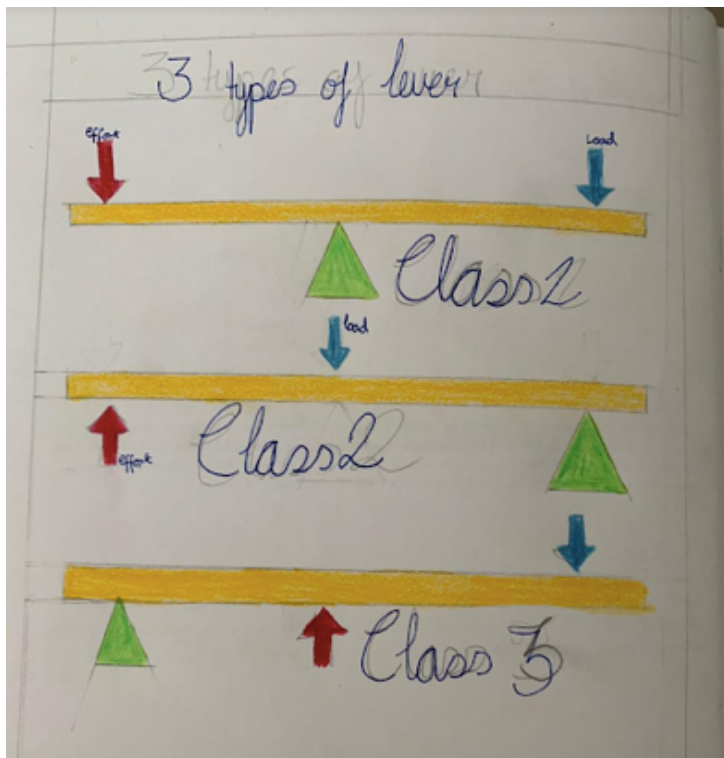 3 types of lever
effort
Load
Class 1
load
effort
Class 2
Class 3